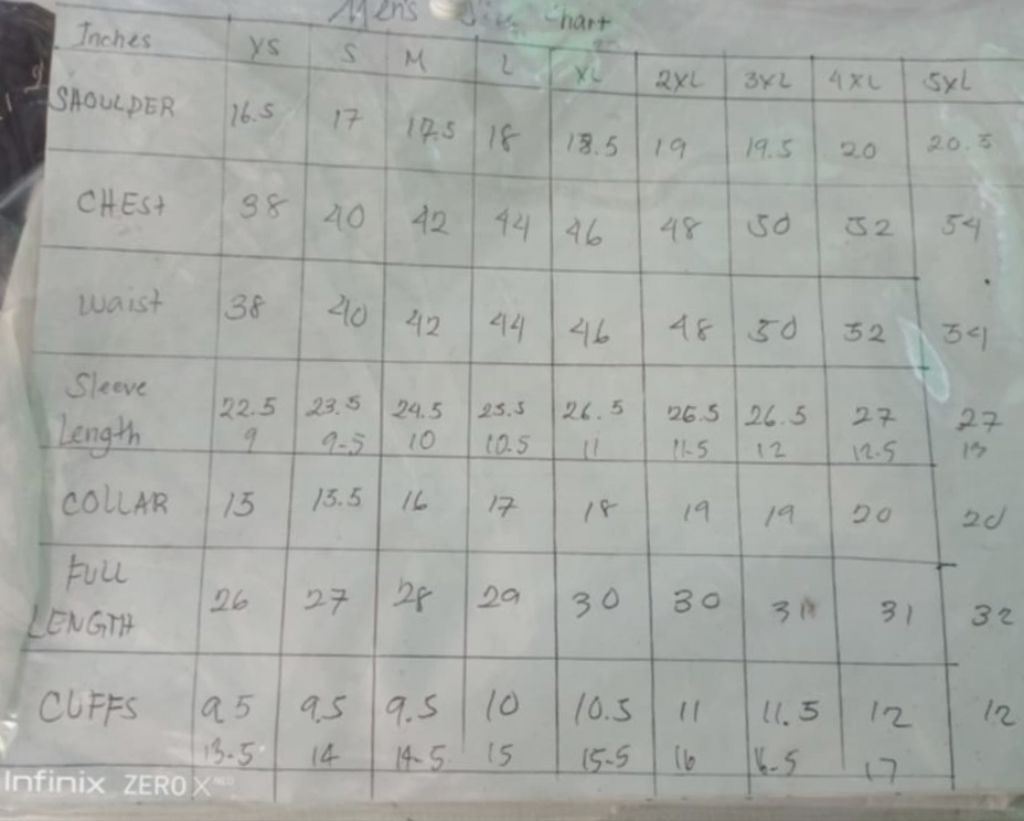 Men's Size Chart
Inches YS S M L XL 2XL 3XL 4XL 5XL
SAOULDER 16.5 17 17.5 18 18.5 19 19.5 20 20.5
CHEST 38 40 42 44 46 48 50 52 54
Waist 38 40 42 44 46 48 50 52 54
Sleeve
Length 22.5 23.5 24.5 25.5 26.5 26.5 26.5 27 27
9 9-5 10 10.5 11 11-5 12 12.5 13
COLLAR 15 15.5 16 17 18 19 19 20 20
FULL
LENGTH 26 27 28 29 30 30 31 31 32
CUFFS 9 5 9.5 9.5 10 10.5 11 11.5 12 12
13-5 14 14-5 15 15-5 16 16-5 17
Infinix ZERO X NEO